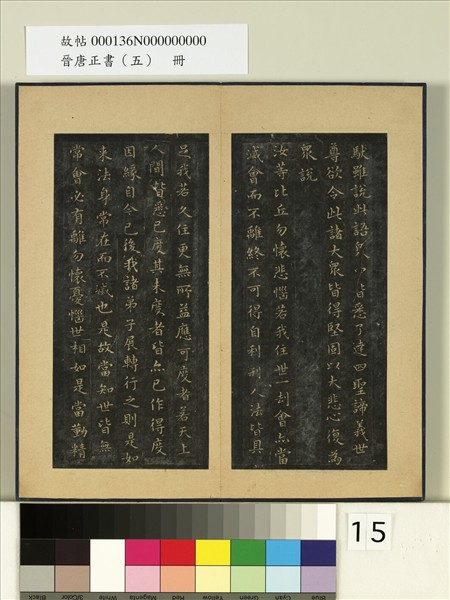 故帖 000136N000000000
晉唐正書（五） 冊
馱雖說此語眾人皆悉了達四聖諦義世
尊欲令此諸大眾皆得堅固以大悲復為
眾說
汝等比丘勿懷悲惱若我住世一劫會亦當
滅會而不離終不可得自利利人法皆具
足我若久住更無所益應可度者若天上
人間皆悉已度其未度者皆亦已作得度
因緣自今已後我諸弟子展轉行之則是如
來法身常在而不滅也是故當知世皆無
常會必有離勿懷憂惱世相如是當勤精
15
Black
3/Color
White
Magenta
Red
Yellow
Green
Cyan
Blue